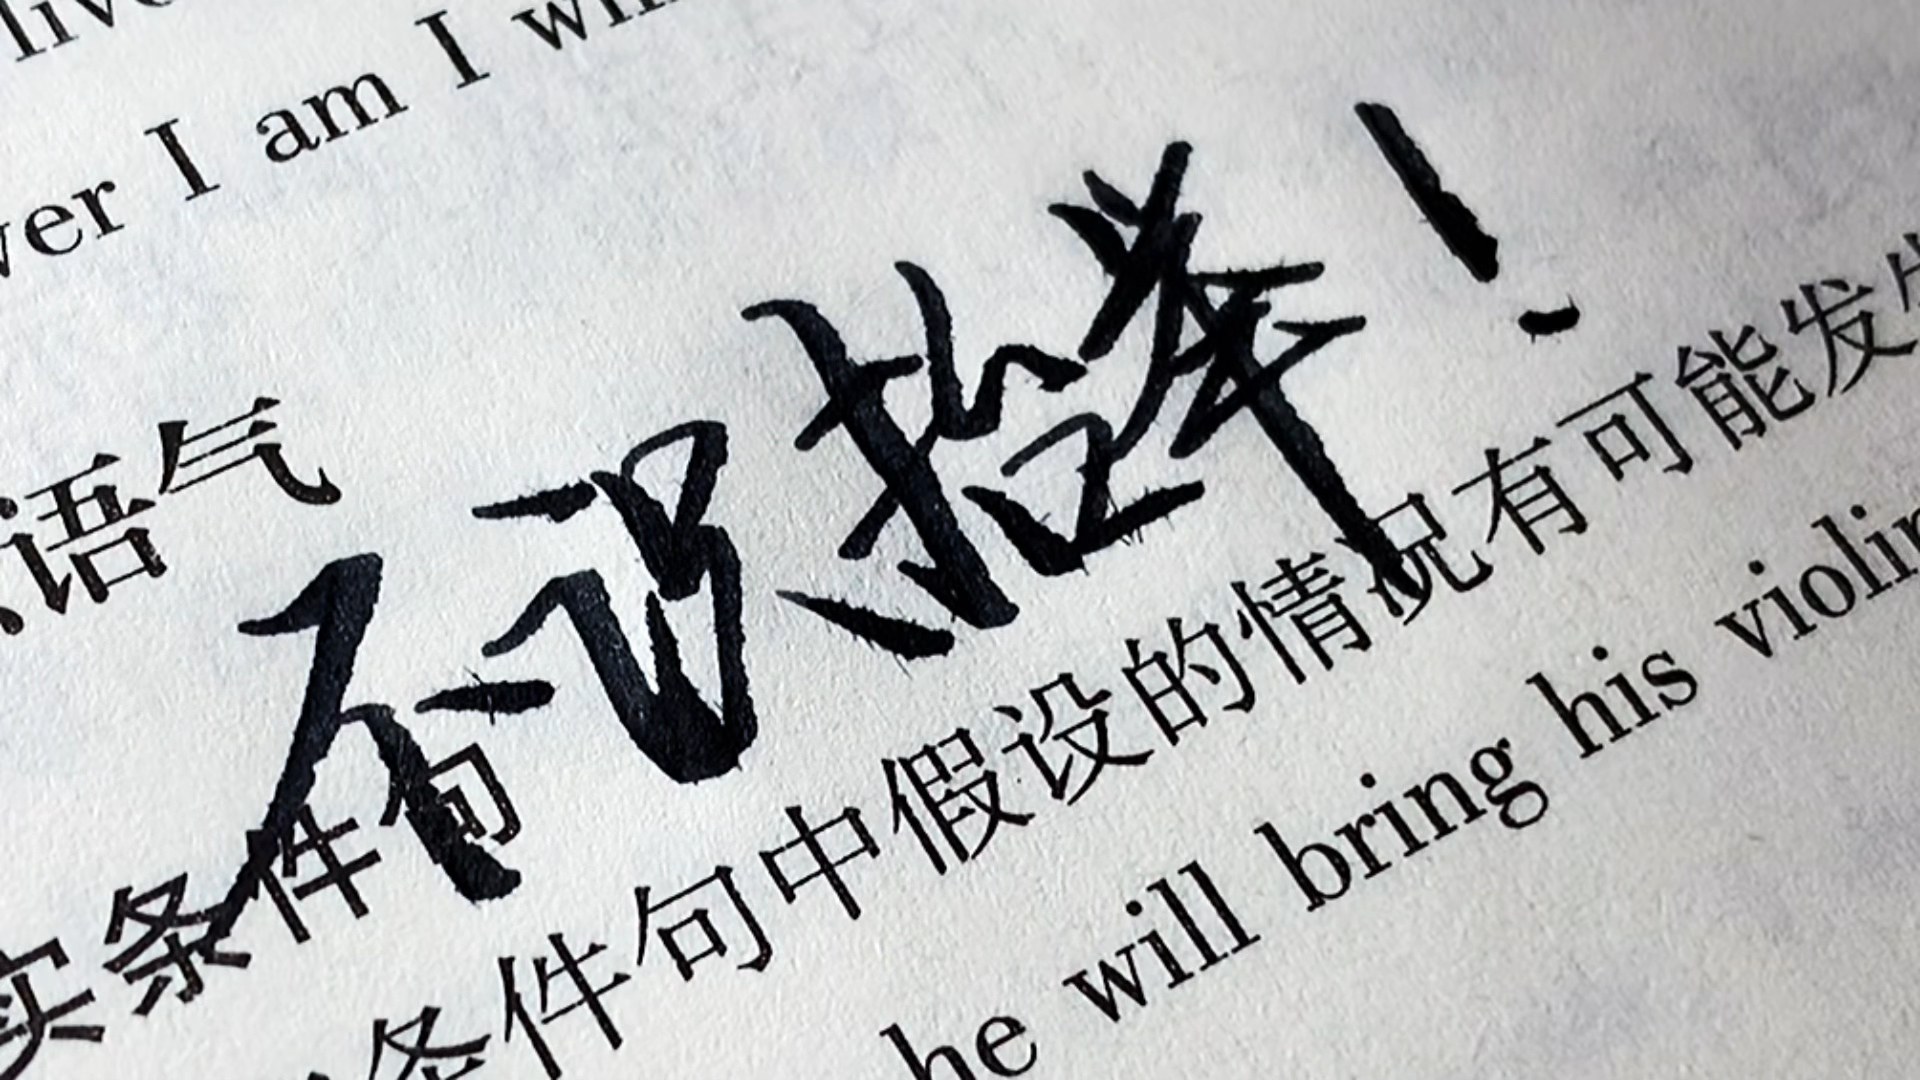 live
ver I am I wil
语气
不识抬举！
实条件句
条件句中假设的情况有可能发生
he will bring his violin